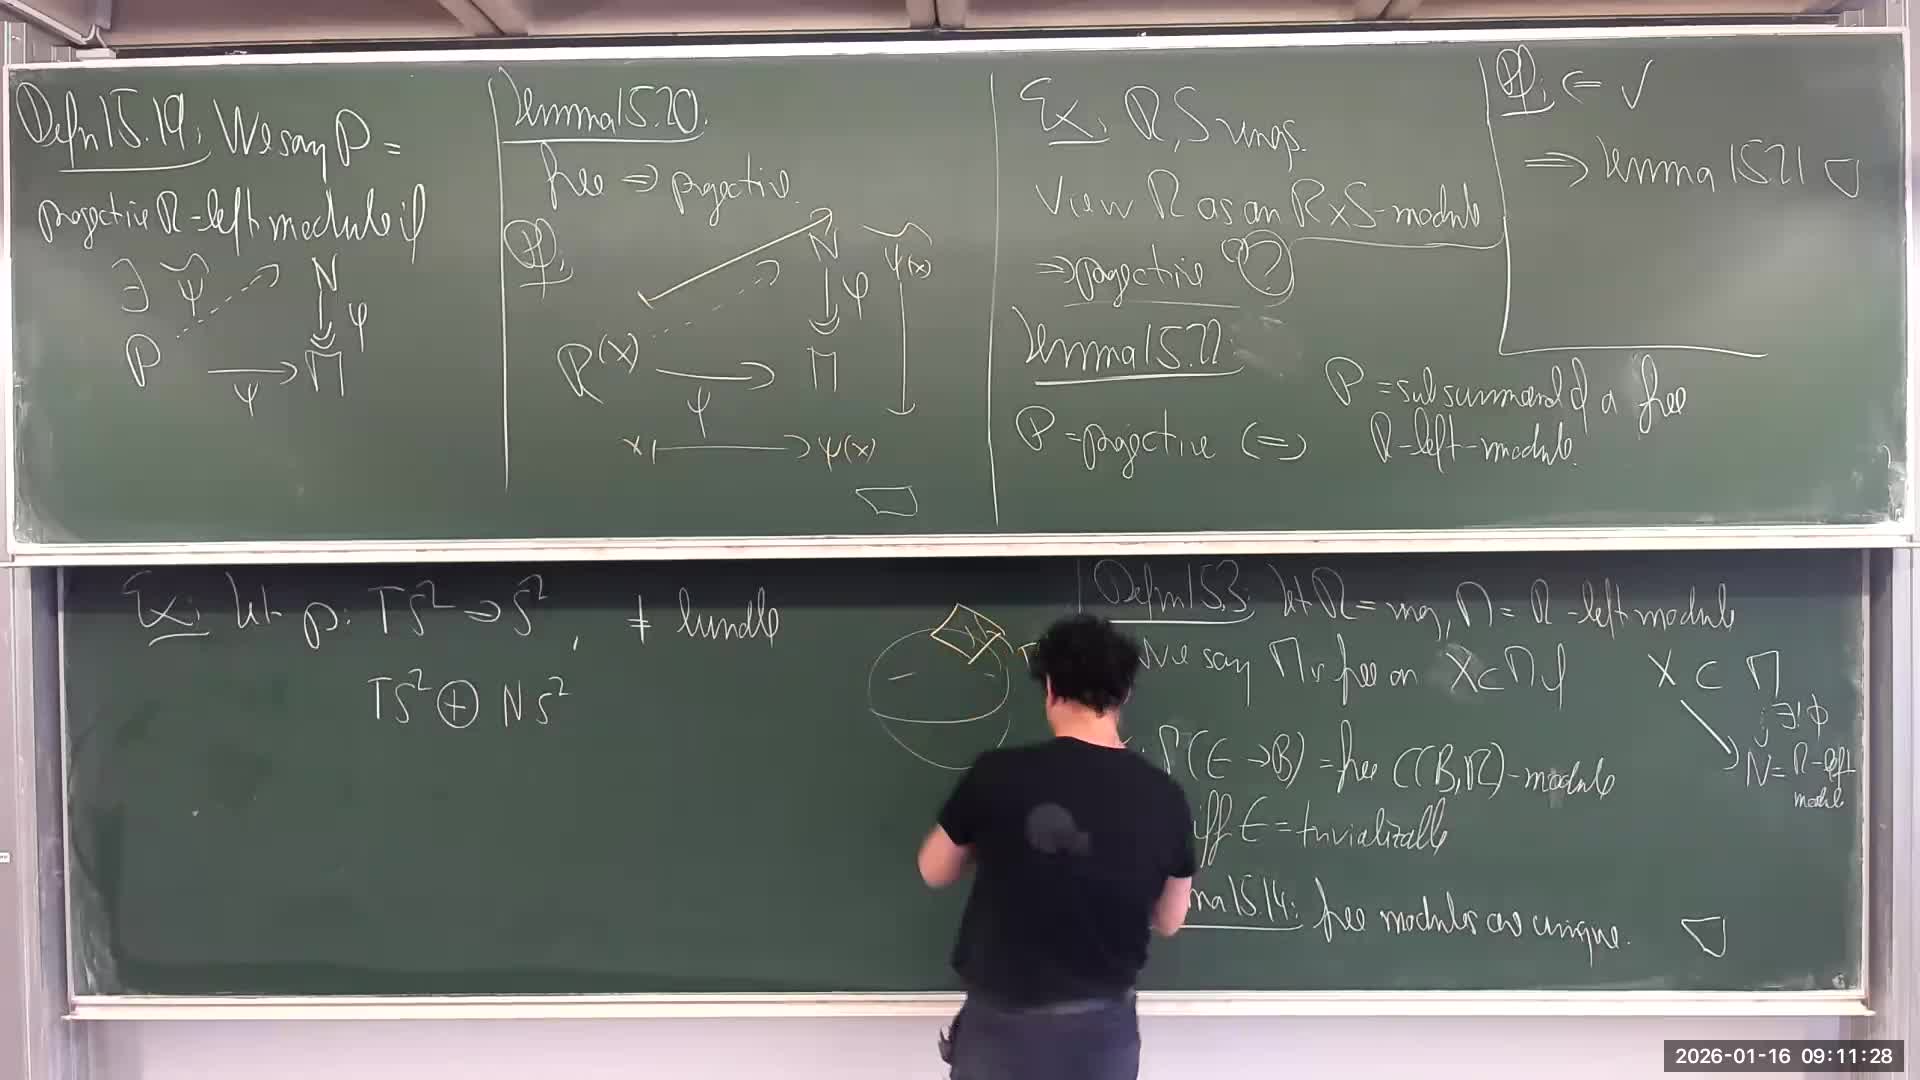 Defn 15.19: We say P =
projective R-left module if
∃ ψ̃ N
φ
P → M
ψ
Lemma 15.20.
free ⇒ projective.
Pf:
N ψ̃(x)
φ
R^(X) → M
ψ
x ↦ ψ(x)
Ex: R, S rings.
View R as an R×S-module
⇒ projective ?
Lemma 15.22:
P = projective ⇔ P = sub summand of a free
R-left-module.
Pf: ⇐ ✓
⇒ Lemma 15.21 □
Ex: Let p: TS² → S², ≠ bundle
TS² ⊕ NS²
Defn 15.3: Let R = ring, M = R-left module
We say M is free on X ⊂ M if
X ⊂ M
∃! φ
N = R-left
module
Γ(E → B) = free C(B,R)-module
iff E = trivializable
ma 15.14: free modules are unique. □
2026-01-16 09:11:28